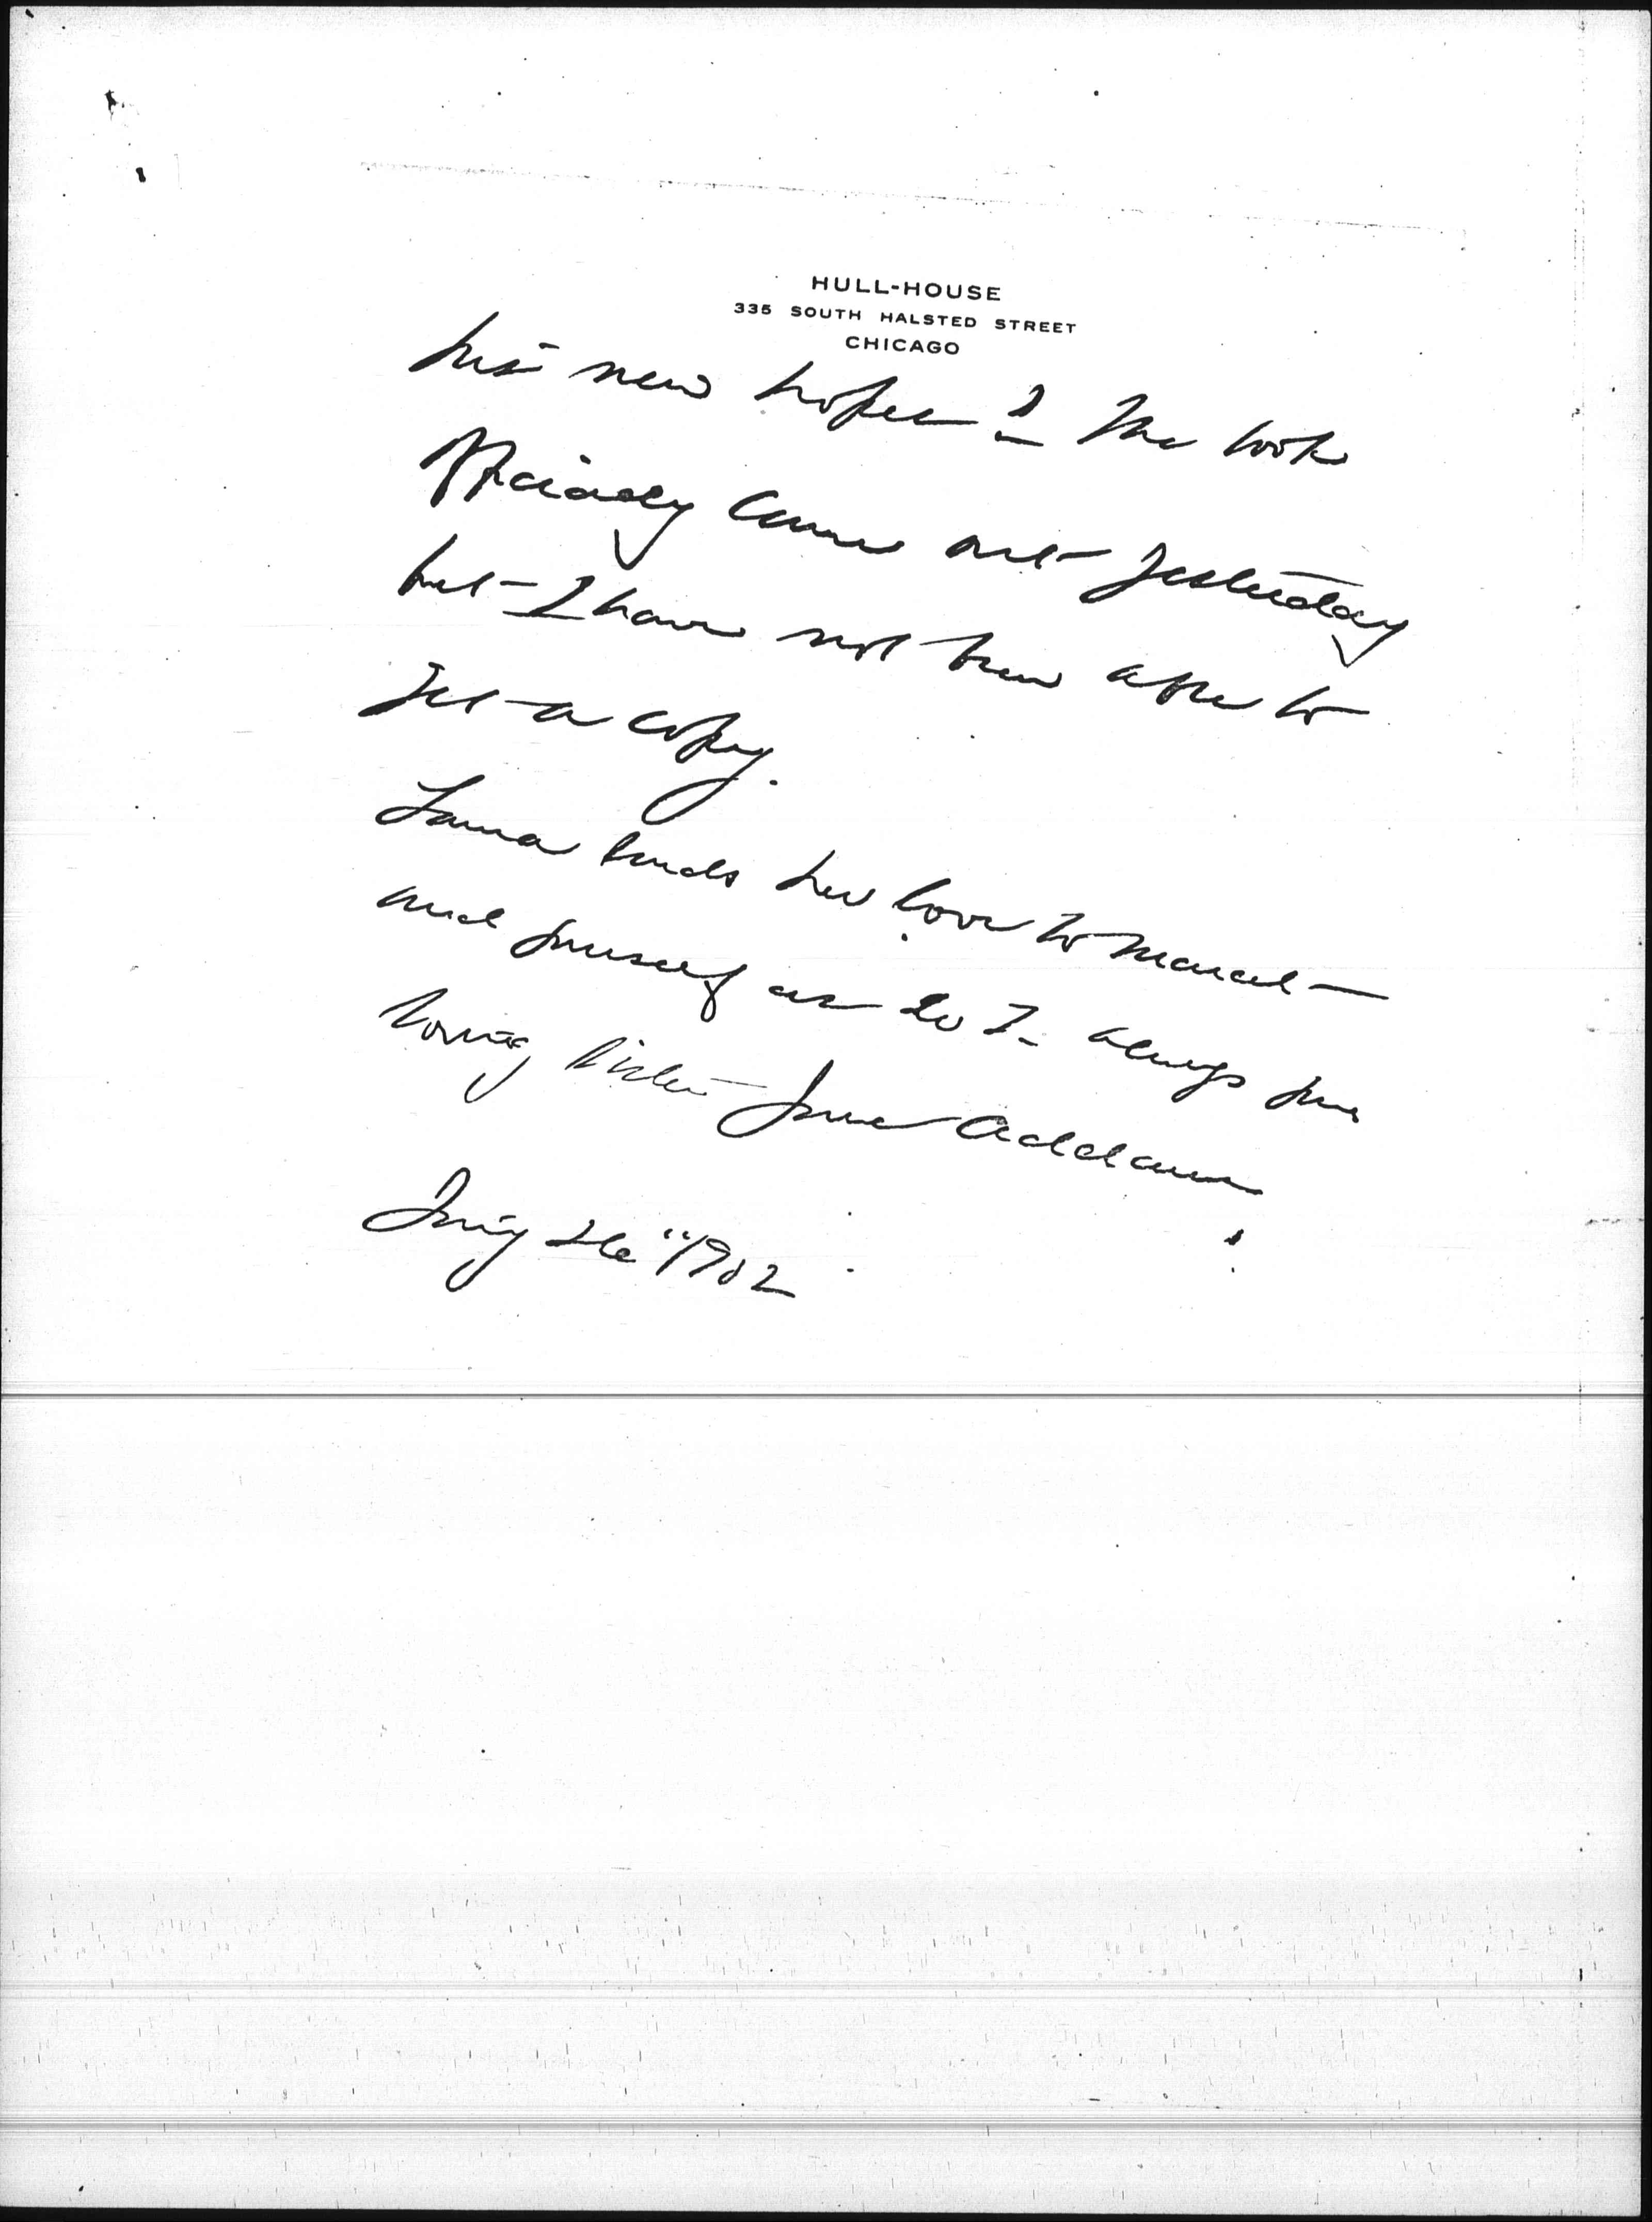 HULL-HOUSE
335 SOUTH HALSTED STREET
CHICAGO
his new hopes? The book
really came out yesterday
but I have not been able to
get a copy.
Laura sends her love to Marcet
and yourself as do I. always your
loving sister Jane Addams
July 26" 1902